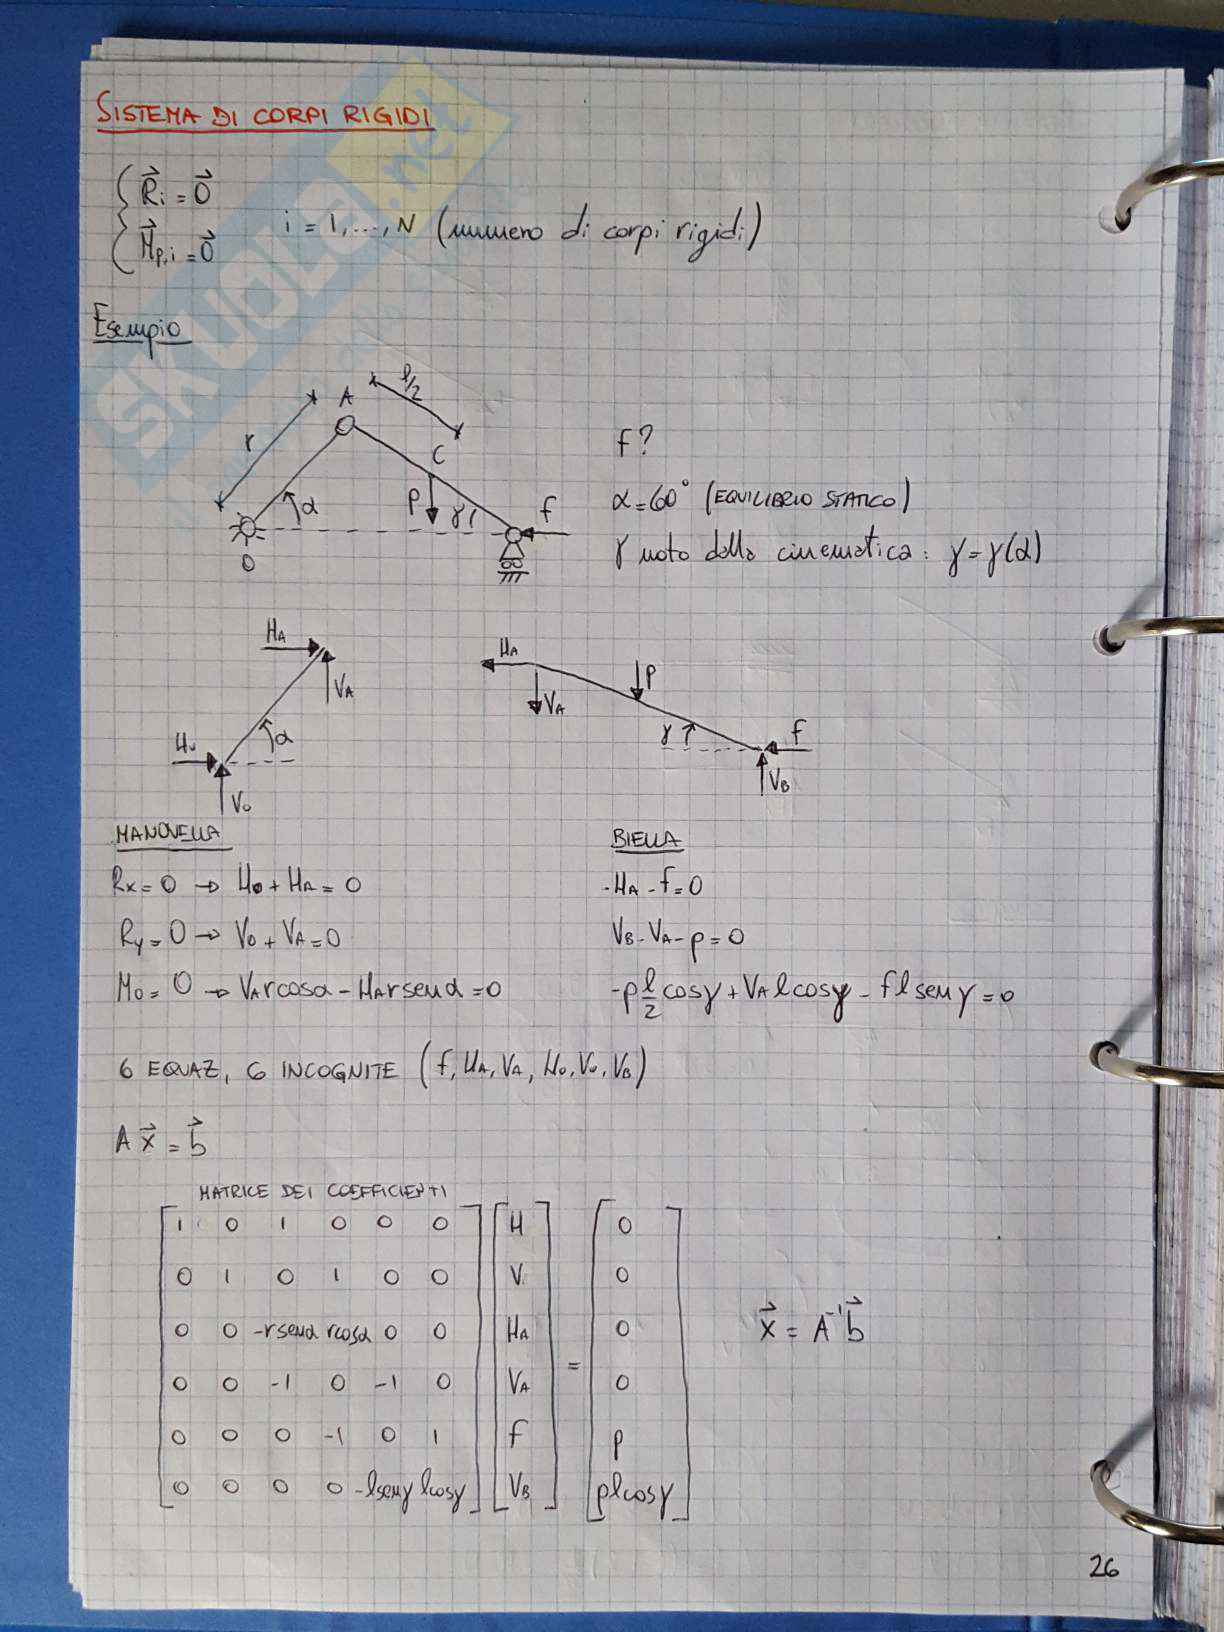 SISTEMA DI CORPI RIGIDI
{ R⃗i = 0⃗
{ M⃗p,i = 0⃗
i = 1, ..., N (numero di corpi rigidi)
Esempio
A
l/2
r
C
α
p
γ
f
O
f?
α = 60° (EQUILIBRIO STATICO)
γ noto dalla cinematica: γ = γ(α)
HA
VA
α
Ho
Vo
HA
VA
p
γ
f
VB
MANOVELLA
Rx = 0 → Ho + HA = 0
Ry = 0 → Vo + VA = 0
Mo = 0 → VA r cosα - HA r senα = 0
BIELLA
-HA - f = 0
VB - VA - p = 0
-p l/2 cosγ + VA l cosγ - f l senγ = 0
6 EQUAZ, 6 INCOGNITE (f, HA, VA, Ho, Vo, VB)
A x⃗ = b⃗
MATRICE DEI COEFFICIENTI
1 0 1 0 0 0 H 0
0 1 0 1 0 0 V 0
0 0 -r senα r cosα 0 0 HA 0
=
x⃗ = A⁻¹ b⃗
0 0 -1 0 -1 0 VA 0
0 0 0 -1 0 1 f p
0 0 0 0 -l senγ l cosγ VB pl cosγ
26
SKUOLA.net